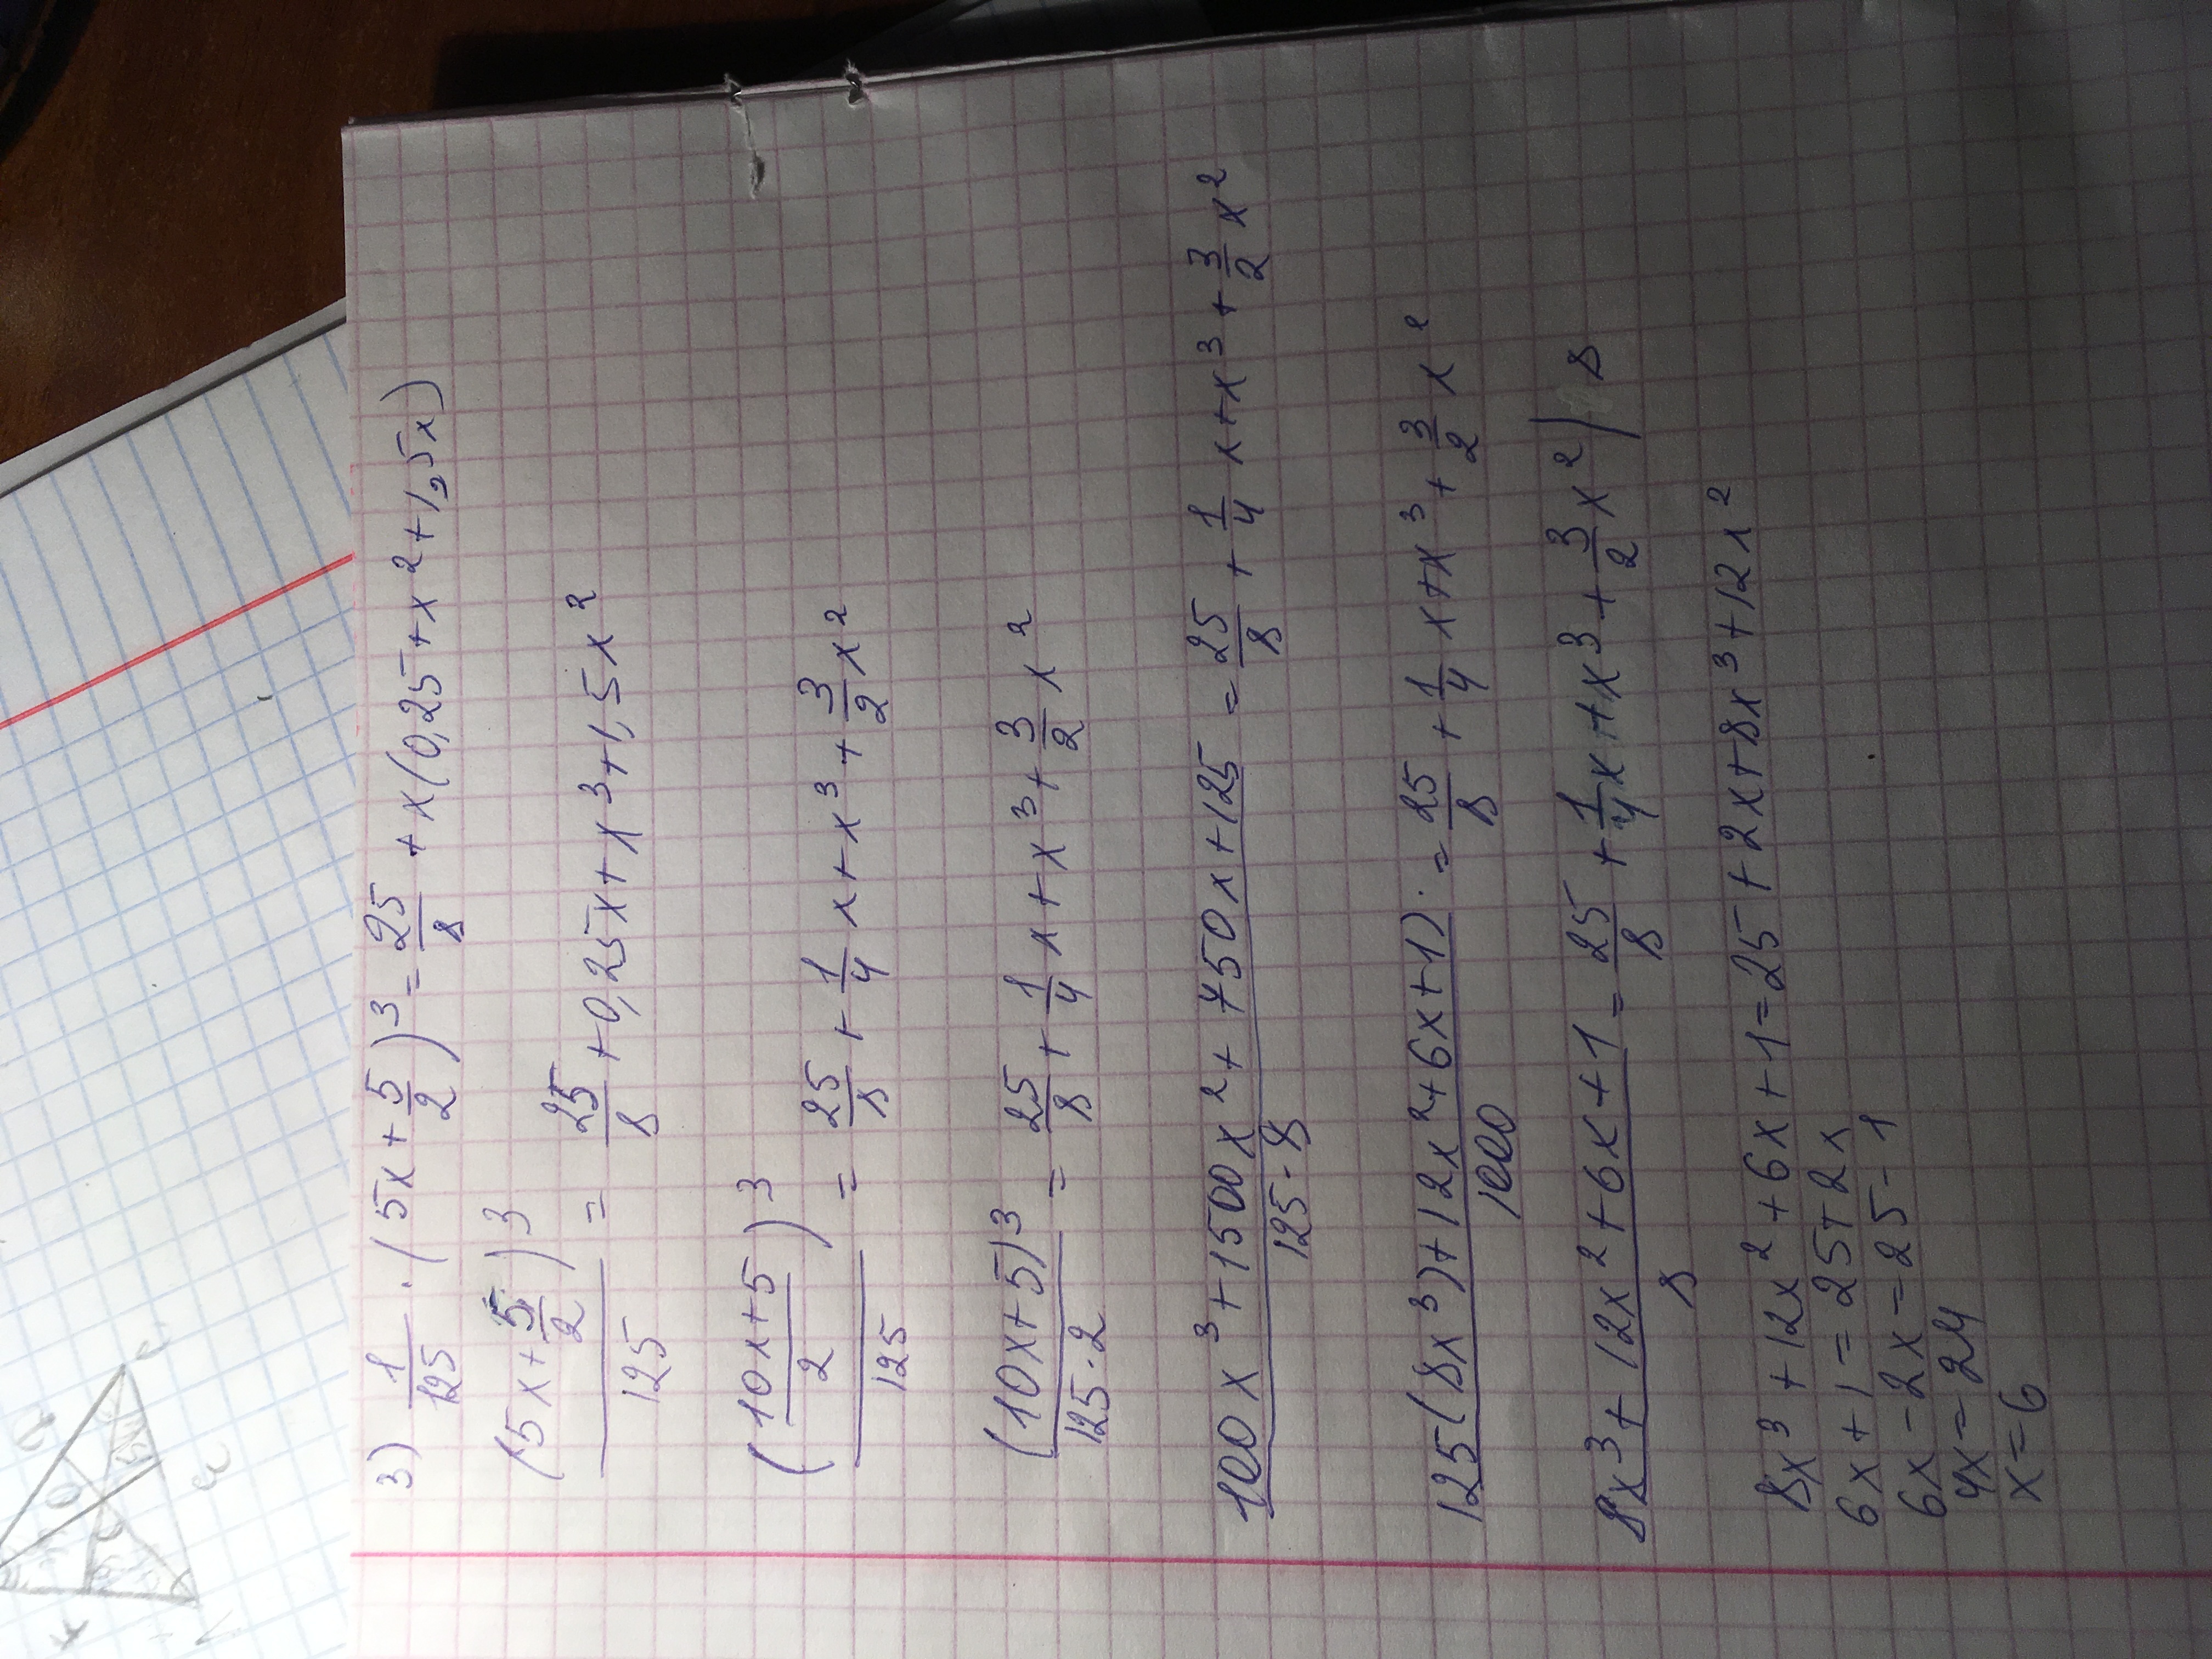 3) 1/125 · (5x + 5/2)³ = 25/8 + x(0,25 + x² + 1,5x)
(5x + 5/2)³ / 125 = 25/8 + 0,25x + x³ + 1,5x²
((10x + 5)/2)³ / 125 = 25/8 + 1/4 x + x³ + 3/2 x²
(10x + 5)³ / 125·2 = 25/8 + 1/4 x + x³ + 3/2 x²
100x³ + 1500x² + 750x + 125 / 125·8 = 25/8 + 1/4 x + x³ + 3/2 x²
125(8x³) + 12x² + 6x + 1) · / 1000 = 25/8 + 1/4 x + x³ + 3/2 x²
8x³ + 12x² + 6x + 1 / 8 = 25/8 + 1/4 x + x³ + 3/2 x² | 8
8x³ + 12x² + 6x + 1 = 25 + 2x + 8x³ + 12x²
6x + 1 = 25 + 2x
6x - 2x = 25 - 1
4x = 24
x = 6